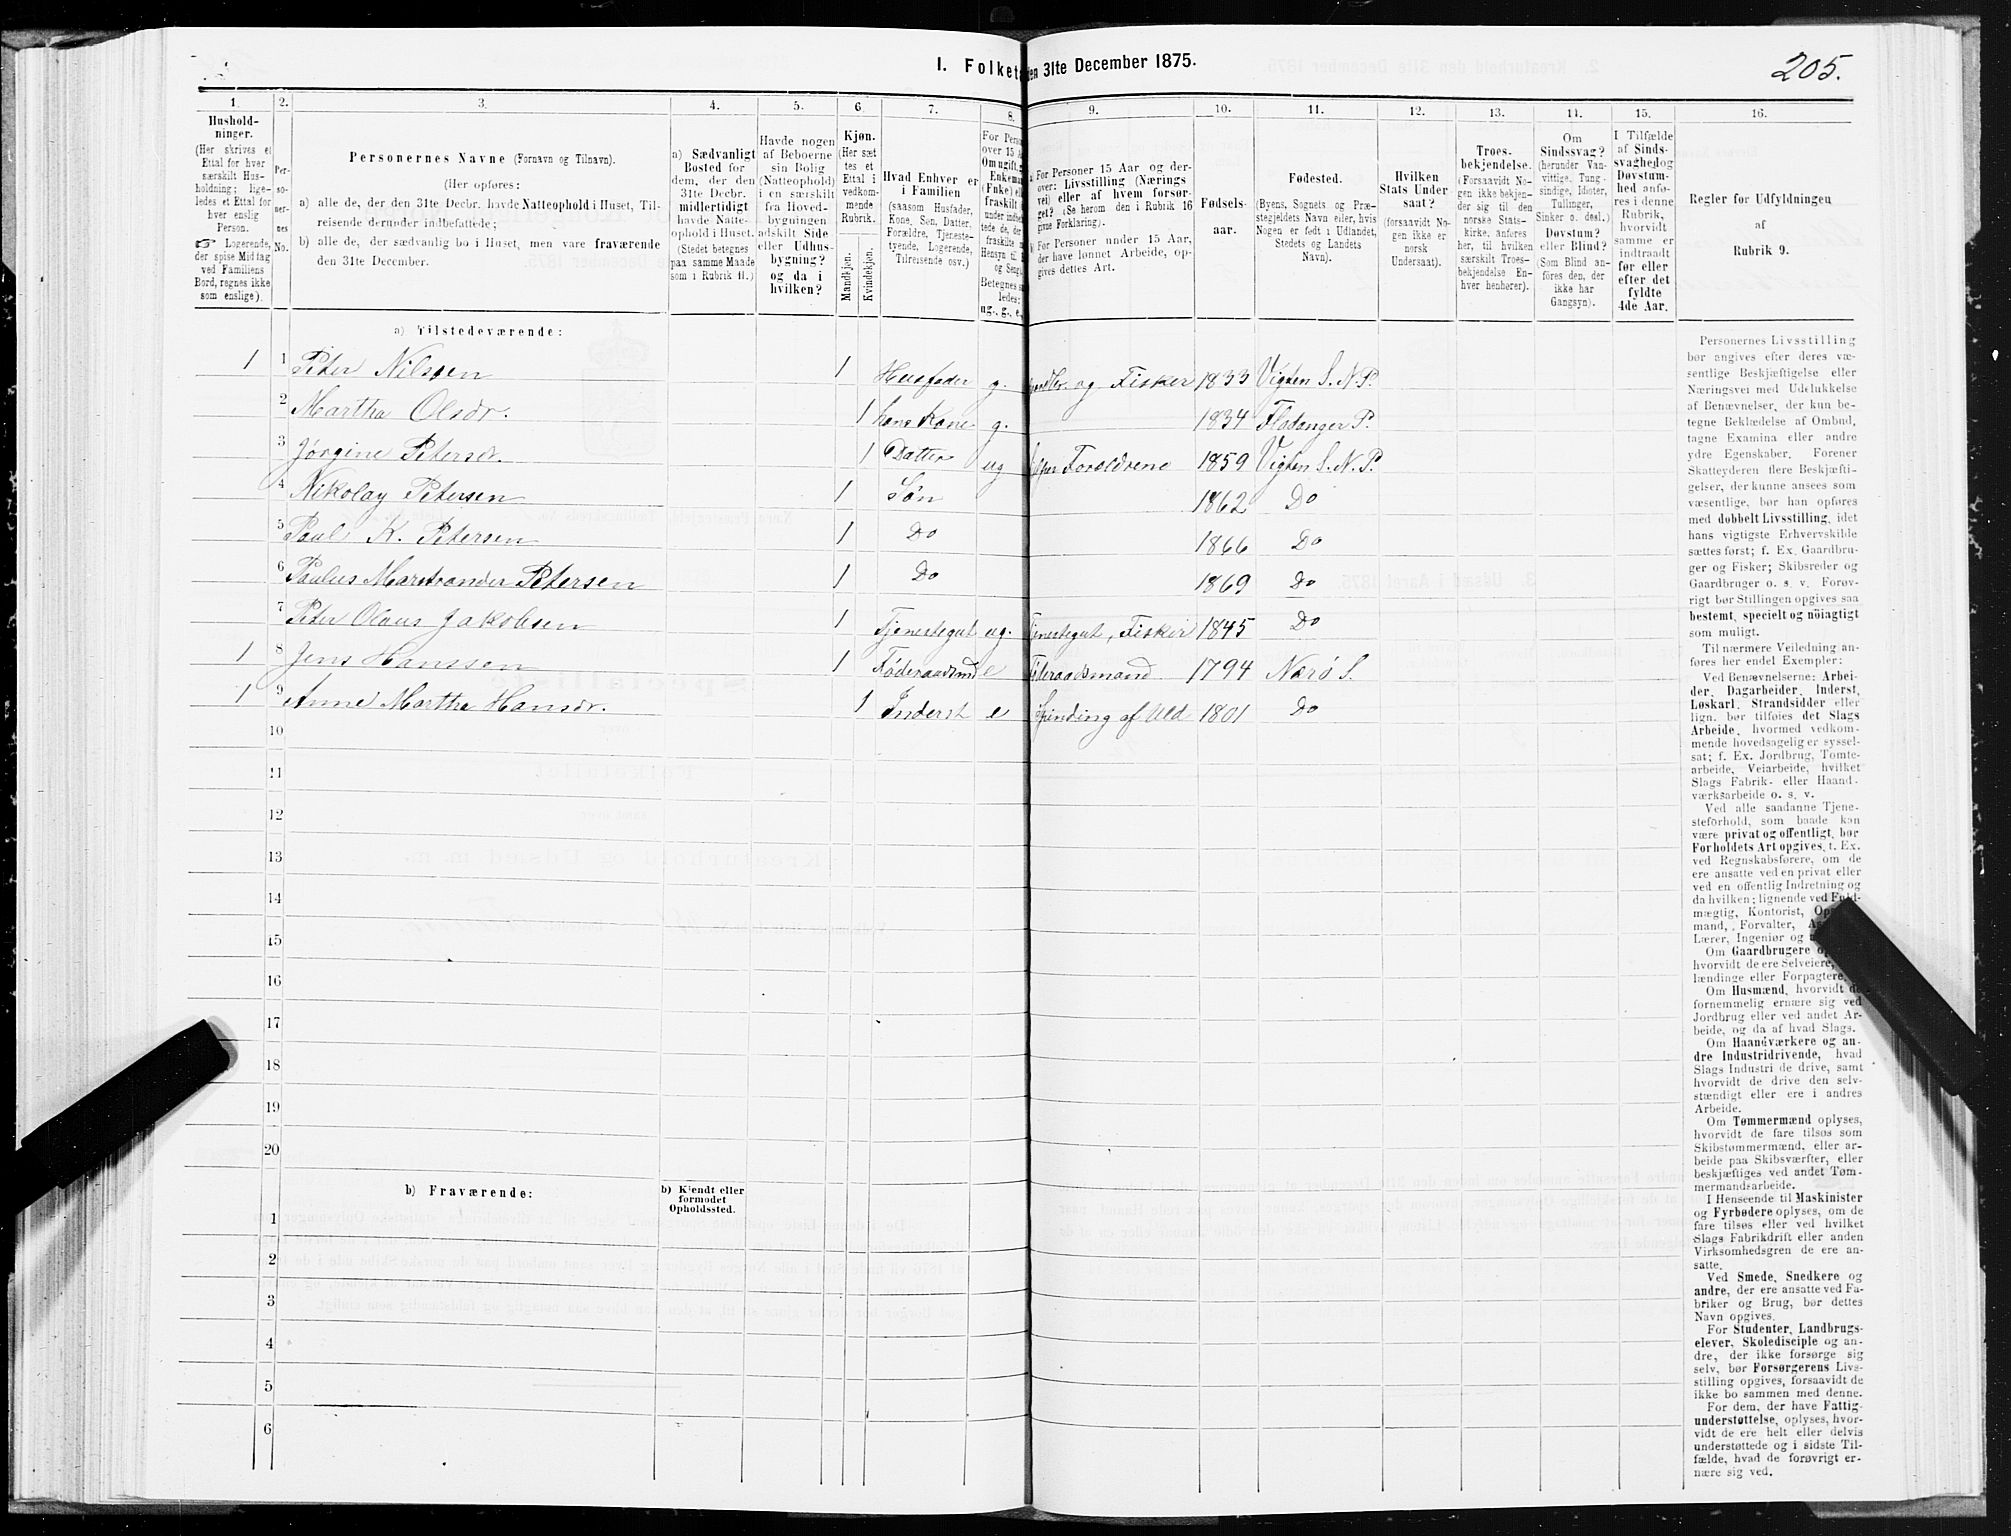 I. Folketa
den 31te December 1875.
205.
1. 2. 3. 4. 5. 6. 7. 8. 9. 10. 11. 12. 13. 14. 15. 16.
Hushold-
ninger.
(Her skrives et
Ettal for hver
særskilt Hus-
holdning; lige-
ledes et Ettal for
hver enslig
Person.
☞ Logerende,
der spise Middag
ved Familiens
Bord, regnes ikke
som enslige).
Per-
so-
ner-
nes
No.
Personernes Navne (Fornavn og Tilnavn).
(Her opføres:
a) alle de, der den 31te Decbr. havde Natteophold i Huset, Til-
reisende derunder indbefattede;
b) alle de, der sædvanlig bo i Huset, men vare fraværende
den 31te December.
a) Sædvanligt
Bosted for
dem, der den
31te Decbr.
midlertidigt
havde Natte-
ophold i Huset.
(Stedet betegnes
paa samme Maade
som i Rubrik 11.)
Havde nogen
af Beboerne
sin Bolig
(Natteophold)
i en særskilt
fra Hoved-
bygningen
adskilt Side
eller Udhus-
bygning?
og da i
hvilken?
Kjøn.
(Her sæt-
tes et
Ettal i
vedkom-
mende
Rubrik.
Mandkjøn.
Kvindekjøn.
Hvad Enhver er
i Familien
(saasom Husfader,
Kone, Søn, Datter,
Forældre, Tjeneste-
tyende, Logerende,
Tilreisende osv.)
For Perso
over 15 A
Om ugift, g
Enkema
(Enke) el
fraskilt
under indbef
tede de, der
fraskilte
Hensyn til B
og Seng
Betegnes s
ledes:
ug., g., e.,
a) For Personer 15 Aar og der-
over: Livsstilling (Nærings
vei) eller af hvem forsør-
get? (Se herom den i Rubrik 16
givne Forklaring).
b) For Personer under 15 Aar,
der have lønnet Arbeide, op-
gives dettes Art.
Fødsels-
aar.
Fødested.
(Byens, Sognets og Præ-
stegjeldets Navn eller, hvis
Nogen er født i Udlandet,
Stedets og Landets
Navn).
Hvilken
Stats Under
saat?
(forsaavidt No-
gen ikke er
norsk
Undersaat).
Troes-
bekjendelse.
(Forsaavidt No-
gen ikke bekjen-
der sig til den
norske Stats-
kirke, anføres
her, til hvilken
særskilt Troes-
bekjendelse En-
hver henhører).
Om
Sindssvag?
(herunder Van-
vittige, Tung-
sindige, Idioter,
Tullinger,
Sinker o. desl.)
Døvstum?
eller Blind?
(Som Blind an-
føres den, der
ikke har
Gangsyn).
I Tilfælde
af Sinds-
svaghed og
Døvstum-
hed anfø-
res i denne
Rubrik,
hvorvidt
samme er
indtraadt
før eller
efter det
fyldte
4de Aar.
Regler for Udfyldningen
af
Rubrik 9.
a) Tilstedeværende:
1 1 Peter Nilssen 1 Husfader g. og Fisker 1833 Vigten S. N. P.
2 Martha Olsdr. 1 hans Kone g. 1834 Fladanger P.
3 Jørgine Petersdr. 1 Datter ug Foreldrene 1859 Vigten S. N. P.
4 Nikolay Petersen 1 Søn 1862 Do
5 Paul K. Petersen 1 Do 1866 Do
6 Paulus Marstrander Petersen 1 Do 1869 Do
7 Peter Olaus Jakobsen 1 Tjenestegut ug. Tjenestegut, Fisker 1845 Do
1 8 Jens Hanssen 1 Føderaadsmd e Føderaadsmand 1794 Nærø S.
1 9 Anne Martha Hansdr. 1 Inderst e Spinding af Uld 1801 Do
10
11
12
13
14
15
16
17
18
19
20
b) Fraværende:
b) Kjendt eller
formodet
Opholdssted.
1
2
3
4
5
6
Personernes Livsstilling
bør angives efter deres væ-
sentlige Beskjæftigelse eller
Næringsvei med Udelukkelse
af Benævnelser, der kun be-
tegne Beklædelse af Ombud,
tagne Examina eller andre
ydre Egenskaber. Forener
Skatteyderen flere Beskjæfti-
gelser, der kunne ansees som
væsentlige, bør han opføres
med dobbelt Livsstilling, idet
hans vigtigste Erhvervskilde
sættes først; f. Ex. Gaardbru-
ger og Fisker; Skibsreder og
Gaardbruger o. s. v. Forøv-
rigt bør Stillingen opgives saa
bestemt, specielt og nöiagtigt
som muligt.
Til nærmere Veiledning an-
føres her endel Exempler:
Ved Benævnelserne: Arbei-
der, Dagarbeider, Inderst,
Løskarl, Strandsidder eller
lign. bør tilføies det Slags
Arbeide, hvormed vedkom-
mende hovedsagelig er syssel-
sat; f. Ex. Jordbrug, Tomte-
arbeide, Veiarbeide, hvilket
Slags Fabrik- eller Haand-
værksarbeide o. s. v.
Ved alle saadanne Tjene-
steforhold, som baade kan
være privat og offentligt, bør
Forholdets Art opgives, f. Ex.
ved Regnskabsførere, om de
ere ansatte ved en privat eller
ved en offentlig Indretning og
da hvilken; lignende ved Fuld-
mægtig, Kontorist,
mand, Forvalter,
Lærer, Ingeniør og
Om Gaardbrugere
hvorvidt de ere Selveiere,
lændinge eller Forpagtere.
Om Husmænd, hvorvidt de
fornemmelig ernære sig ved
Jordbrug eller ved andet Ar-
beide, og da af hvad Slags.
Om Haandværkere og an-
dre Industridrivende, hvad
Slags Industri de drive, samt
hvorvidt de drive den selv-
stændigt eller ere i andres
Arbeide.
Om Tømmermænd oplyses,
hvorvidt de fare tilsøs som
Skibstømmermænd, eller ar-
beide paa Skibsværfter, eller
beskjæftiges ved andet Tøm-
mermandsarbeide.
I Henseende til Maskinister
og Fyrbødere oplyses, om de
fare tilsøs eller ved hvilket
Slags Fabrikdrift eller anden
Virksomhedsgren de ere an-
satte.
Ved Smede, Snedkere og
andre, der ere ansatte ved Fa-
briker og Brug, bør dettes
Navn opgives.
For Studenter, Landbrugs-
elever, Skoledisciple og an-
dre, der ikke forsørge sig
selv, bør Forsørgerens Livs-
stilling opgives, forsaavidt de
ikke bo sammen med denne.
For dem, der have Fattig-
understøttelse, oplyses, hvor-
vidt de ere helt eller delvis
understøttede og i sidste Til-
fælde, hvad de forøvrigt er-
nære sig ved.